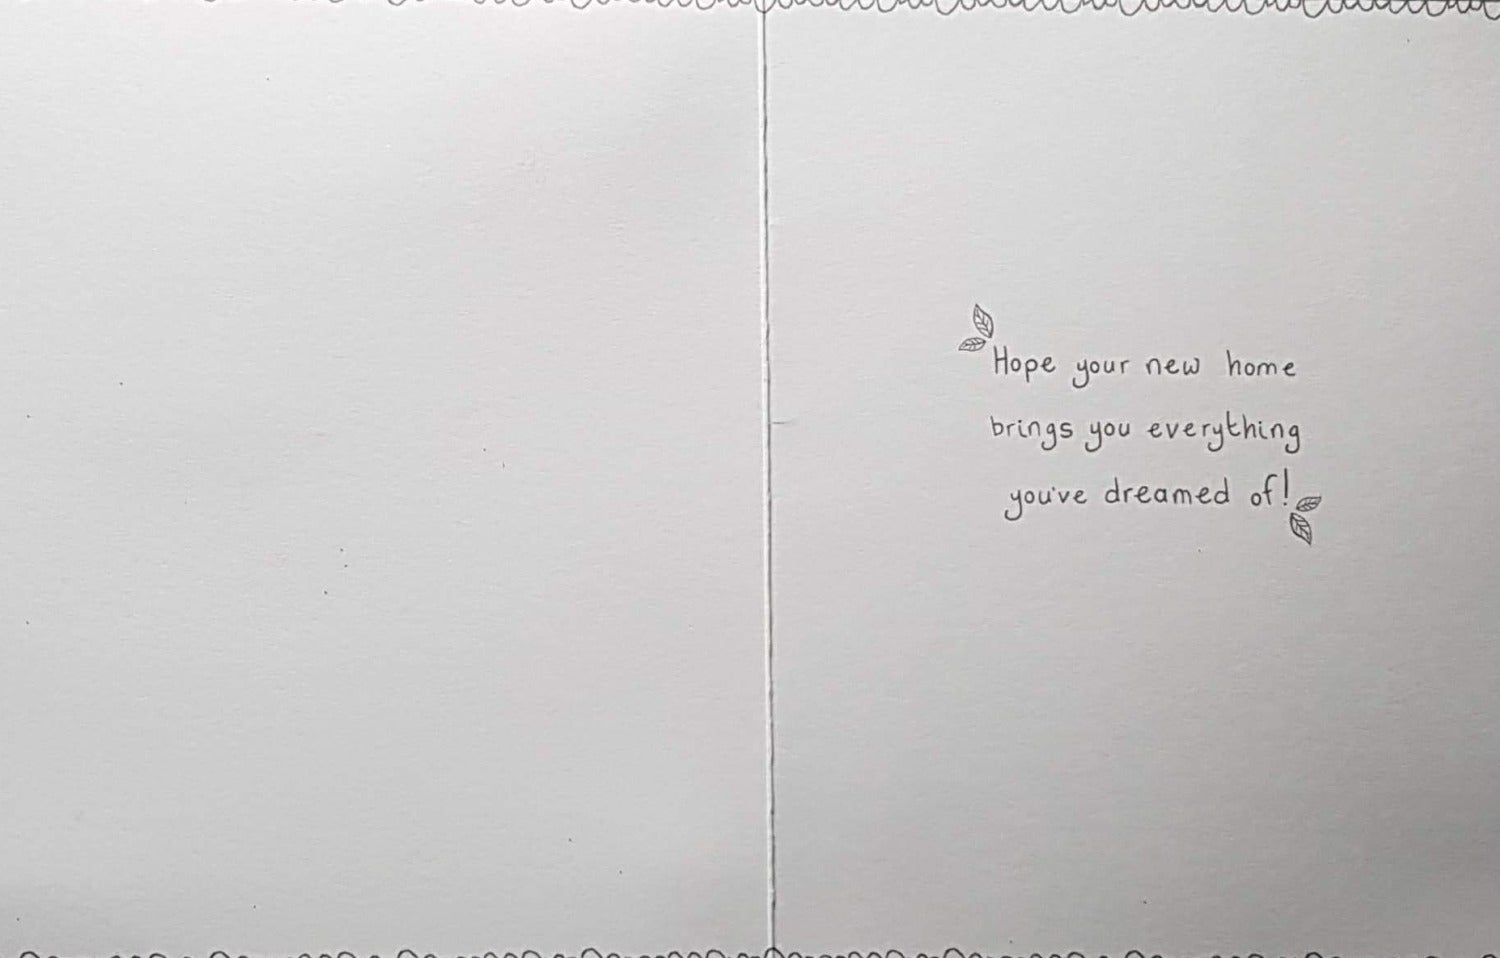 Hope your new home
brings you everything
you've dreamed of!